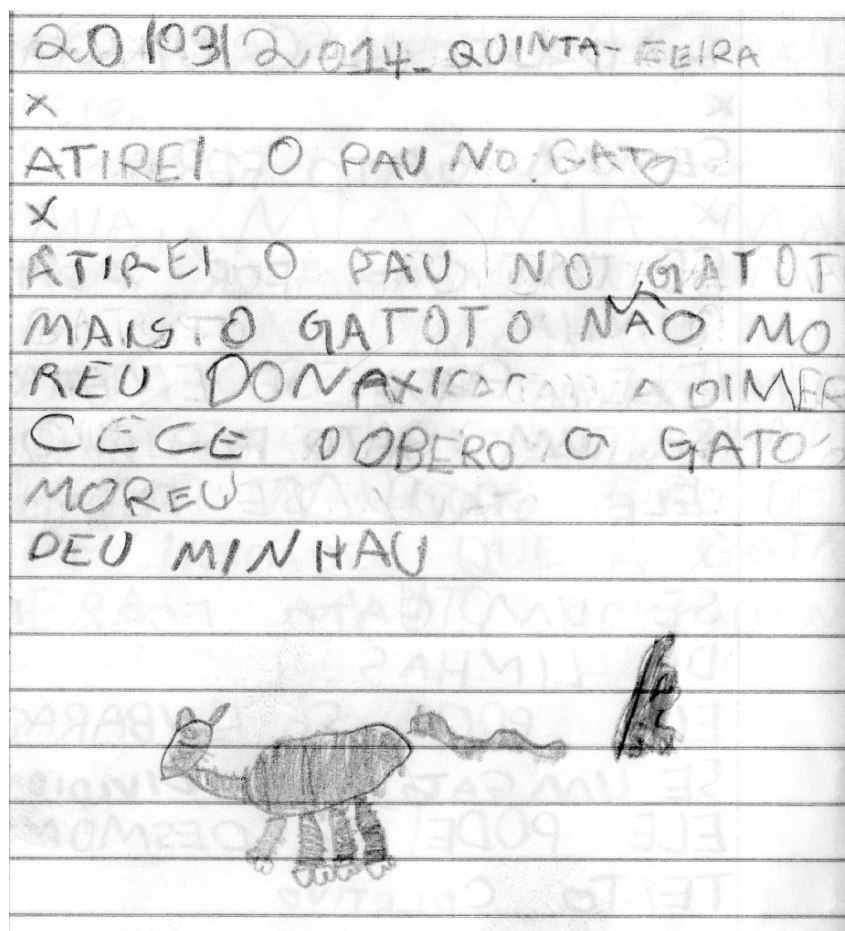 20/03/2014- QUINTA-FEIRA
x
ATIREI O PAU NO GATO
x
ATIREI O PAU NO GATOT
MAIS O GATOTO NÃO MO
REU DONAXICA ADIMER
CECE DOBERO O GATO
MOREU
DEU MINHAU